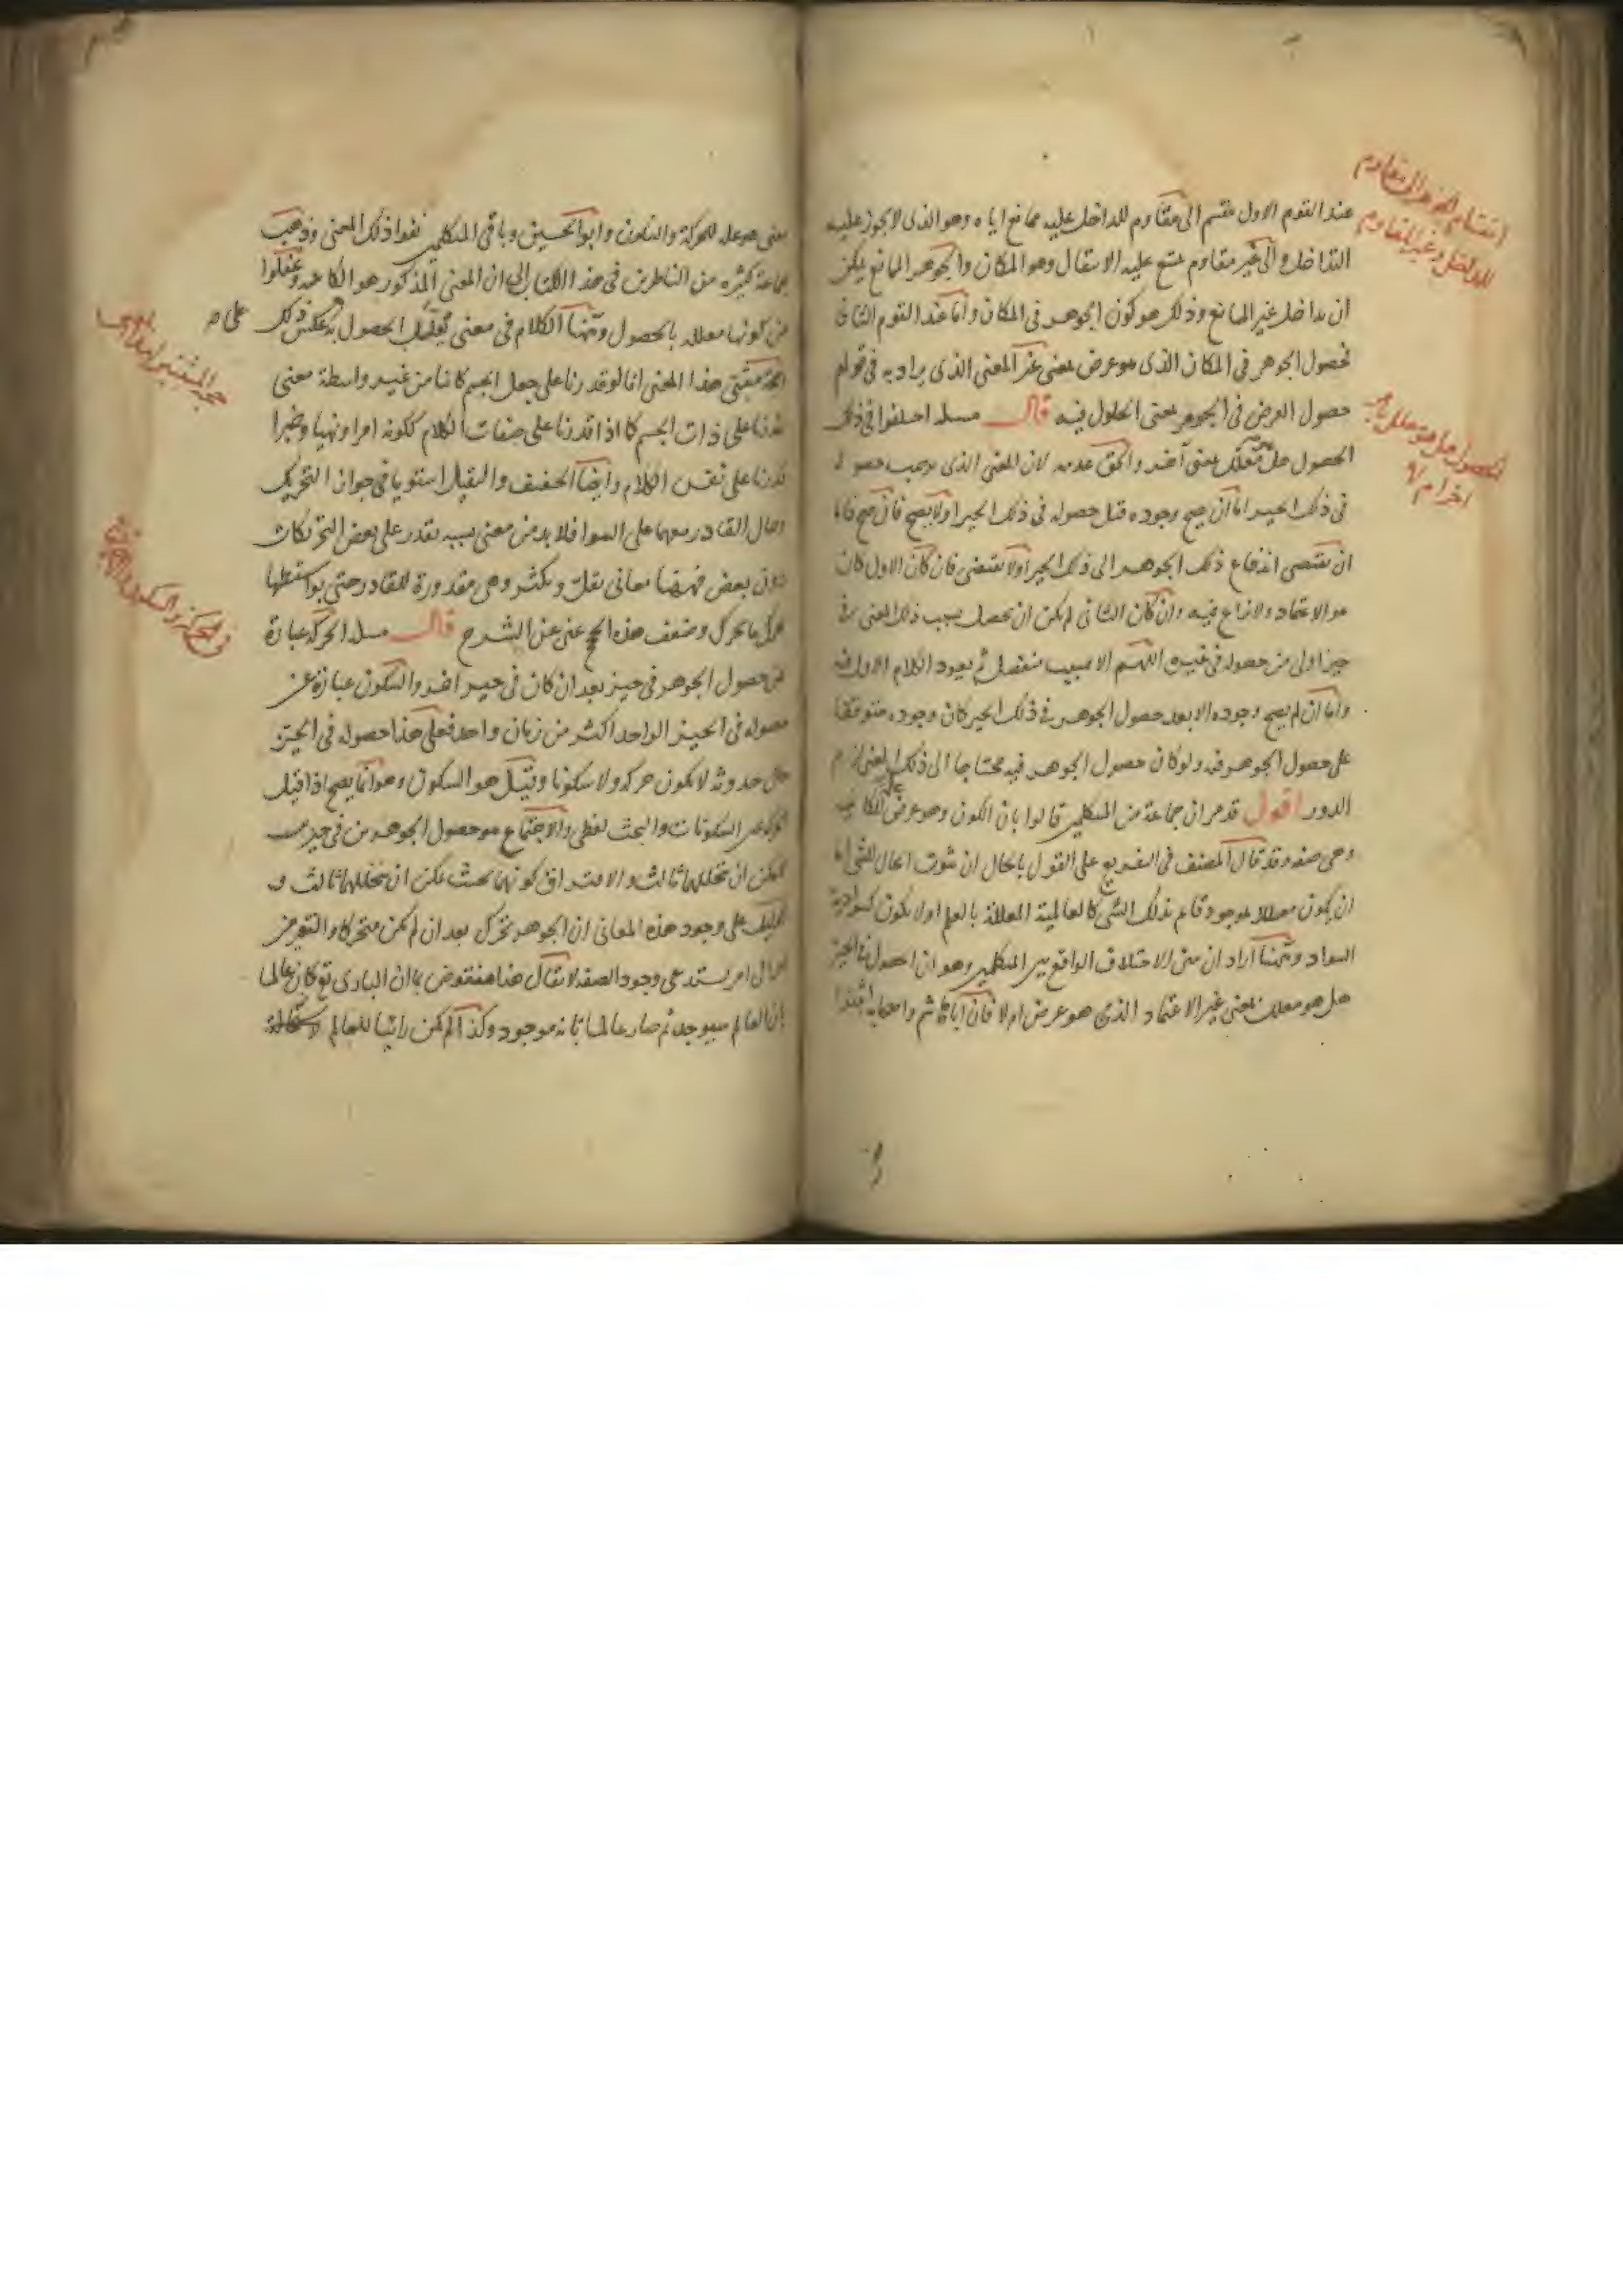 عند القوم الاول منقسم الى مقاوم للداخل عليه ممانع اياه وهو الذى لا يجوز عليه
التداخل والى غير مقاوم ممتنع عليه الانتقال وهو المكان والجوهر الممانع يمكن
ان يداخل غير الممانع وذلك هو كون الجوهر فى المكان واما عند القوم الثانى
فحصول الجوهر فى المكان الذى هو عرض بمعنى غير المعنى الذى يراد به فى قولهم
حصول العرض فى الجوهر بمعنى الحلول فيه قال مسله اختلفوا فى ذلك
الحصول هل هو معلل بمعنى آخر والحق عدمه لان المعنى الذى يوجب حصوله
فى ذلك الحيز اما ان يصح وجوده قبل حصوله فى ذلك الحيز اولا يصح فان صح فاما
ان يقتضى اندفاع ذلك الجوهر الى ذلك الحيز اولا يقتضى فان كان الاول كان
هو الاعتماد ولا نزاع فيه وان كان الثانى لم يكن ان يحصل بسبب ذلك المعنى فى
حيز اولى من حصوله فى غيره اللهم الا بسبب منفصل ثم يعود الكلام الاول فيه
واما ان لم يصح وجوده الا بعد حصول الجوهر فى ذلك الحيز كان وجوده متوقفا
على حصول الجوهر فيه ولو كان حصول الجوهر فيه محتاجا الى ذلك المعنى لزم
الدور اقول قد مر ان جماعة من المتكلمين قالوا بان الكون وهو عرض علة الكائنية
وهى صفه وقد قال المصنف فى التفريع على القول بالحال ان ثبوت الحال للشى اما
ان يكون معللا بموجود قايم بذلك الشى كالعالمية المعللة بالعلم اولا يكون كسوادية
السواد وههنا اراد ان يبين الاختلاف الواقع بين المتكلمين وهو ان الحصول فى الحيز
هل هو معلل بمعنى غير الاعتماد الذى هو عرض ام لا فان ابا هاشم واصحابه اثبتوا
انقسام الجوهر الى مقاوم
للداخل وغير المقاوم
الحصول هل هو معلل بمعنى
آخر ام لا
معنى هو علة للحركة والسكون وابو الحسين وباقى المتكلمين نفوا ذلك المعنى وذهب
جماعة كثيره من الناظرين فى هذا الكتاب الى ان المعنى المذكور هو الكائنية وغفلوا
عن كونها معللة بالحصول وههنا الكلام فى معنى يعلل الحصول به عكس ذلك
حجة مثبتى هذا المعنى انا لو قدرنا على جعل الجسم كائنا من غير واسطة معنى
لقدرنا على ذات الجسم كما اذا قدرنا على صفات الكلام ككونه امرا ونهيا وخبرا
قدرنا على نفس الكلام وايضا الخفيف والثقيل استويا فى جواز التحريك
وحال القادر معهما على السوا فلا بد من معنى بسببه يقدر على بعض التحريكات
دون بعض فههنا معانى تقل وتكثر وهى مقدورة للقادر حتى بواسطتها
يحرك ما يحرك وضعف هذه الحجج غنى عن الشرح قال مسله الحركة عبارة
عن حصول الجوهر فى حيز بعد ان كان فى حيز آخر والسكون عبارة عن
حصوله فى الحيز الواحد اكثر من زمان واحد فعلى هذا حصوله فى الحيز
حال حدوثه لا يكون حركة ولا سكونا وقيل هو السكون وهو انما يصح اذا قيل
الحركة عين السكونات والبحث لفظى والاجتماع هو حصول الجوهرين فى حيزين
لا يمكن ان يتخللهما ثالث والافتراق كونهما بحيث يمكن ان يتخللهما ثالث و
الدليل على وجود هذه المعانى ان الجوهر تحرك بعد ان لم يكن متحركا والتغير من
امر الى امر يستدعى وجود الصفه لا يقال هذا منقوض بان البارى تع كان عالما
بان العالم سيوجد ثم صار عالما بانه موجود وكذا لم يكن رائيا للعالم
حجة المثبتين
على
فى الحركة والسكون